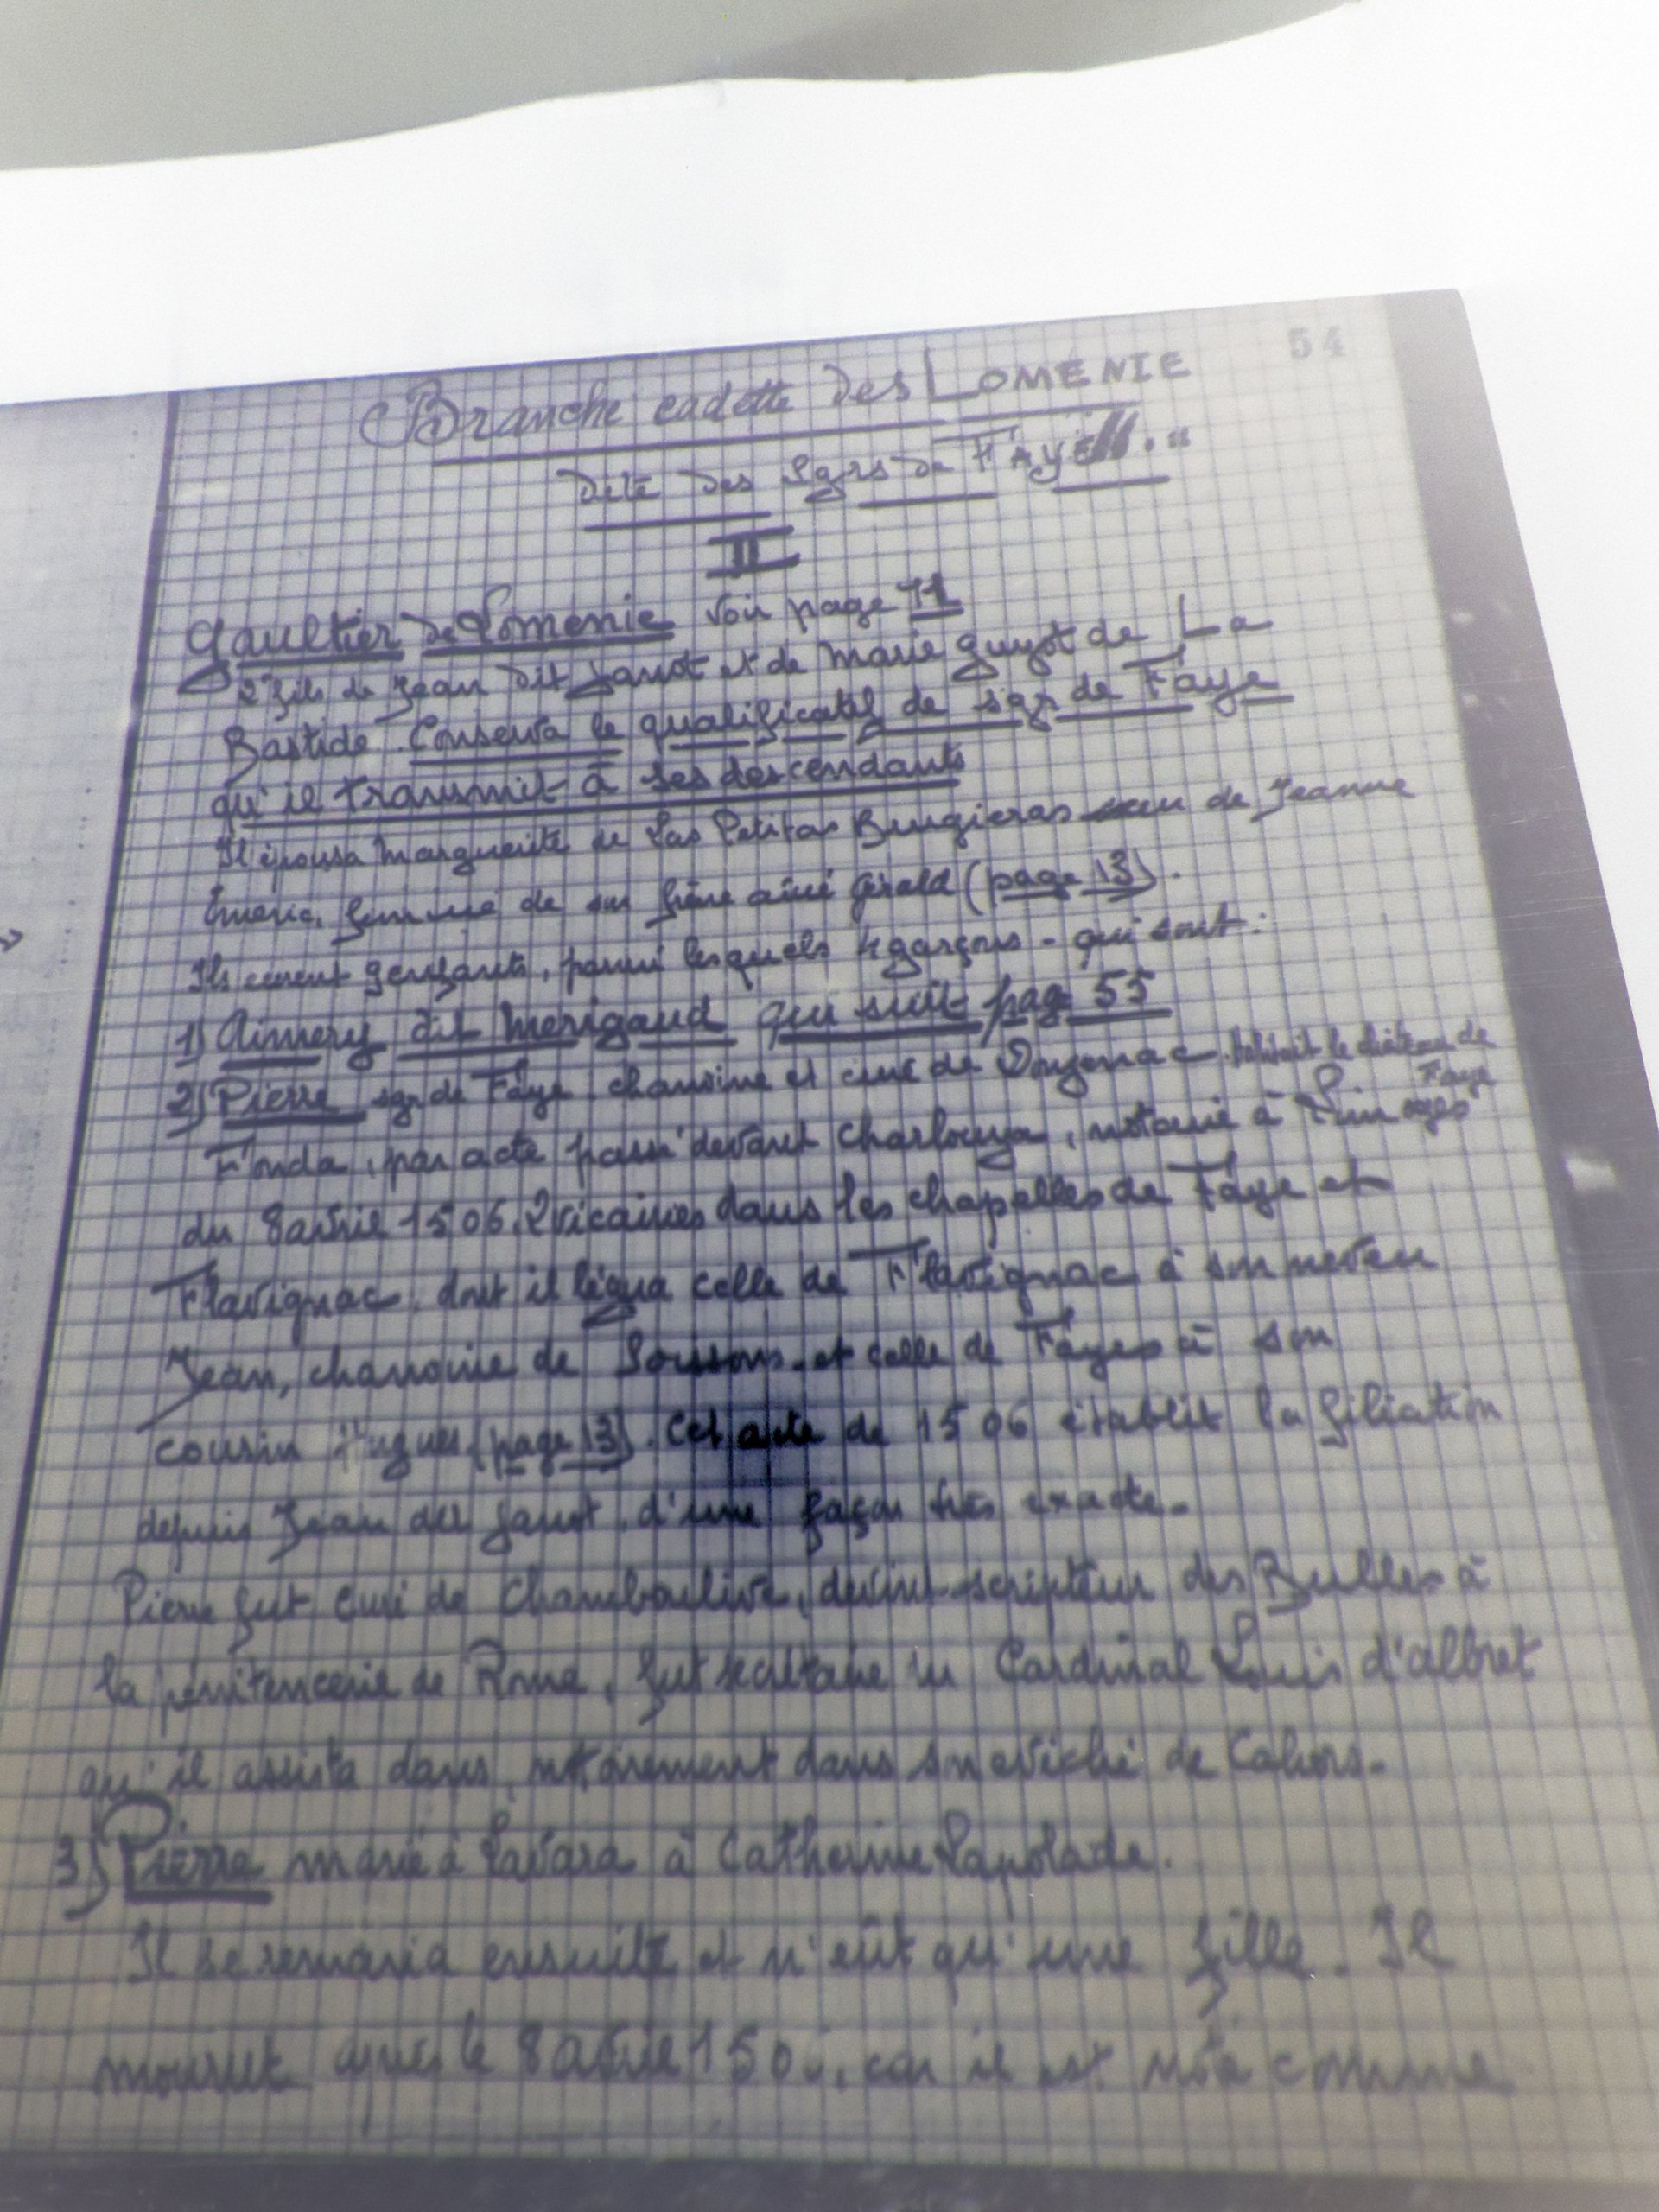 54
Branche cadette des LOMÉNIE
dite des Sgrs de FAYE
II
Gaultier de Lomenie voir page 11
2e fils de Jean dit Janot et de Marie Guyot de La
Bastide. Conserva le qualificatif de sgr de Faye
qu'il transmit à ses descendants
Il épousa Marguerite de Las Petitas Brugieras soeur de Jeanne
Emeric, femme de son frère aîné Gérald (page 13).
Ils eurent 9 enfants, parmi lesquels 4 garçons - qui sont :
1) Aimery dit Merigaud qui suit page 55
2) Pierre sgr de Faye chanoine et curé de habitait le château de
Faye
Fonda, par acte passé devant Charlouya, notaire à Limoges
du 8 avril 1506. 2 vicairies dans les chapelles de Faye et
Flavignac, dont il légua celle de Flavignac à son neveu
Jean, chanoine de Soissons et celle de Fayes à son
cousin Hugues (page 13). Cet acte de 1506 établit la filiation
depuis Jean dit Janot d'une façon très exacte.
Pierre fut curé de Chamboulive, devint scripteur des Bulles à
la pénitencerie de Rome, fut secrétaire du Cardinal Louis d'albret
qu'il assista dans notoirement dans son évêché de Cahors.
3) Pierre marié à Savara à Catherine Lapolade.
Il se remaria ensuite et n'eût qu'une fille. Il
mourut après le 8 avril 150, car il est noté comme